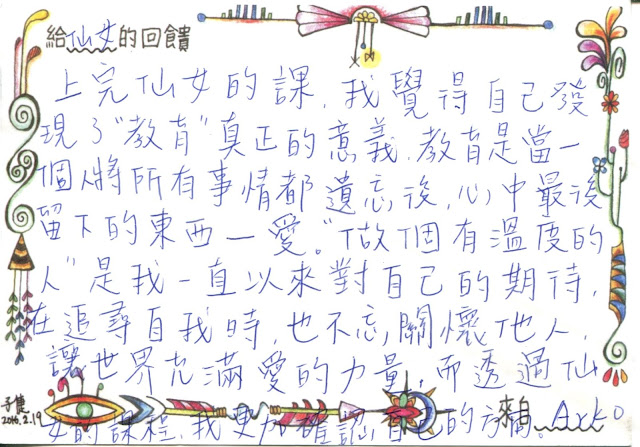 給仙女的回饋
上完仙女的課，我覺得自己發
現了"教育"真正的意義，教育是當一
個人將所有事情都遺忘後，心中最後
留下的東西—愛。"做個有溫度的
人"是我一直以來對自己的期待，
在追尋自我時，也不忘關懷他人，
讓世界充滿愛的力量，而透過仙
女的課程，我更加確認自己的方向
2016.2.19
來自 Arko